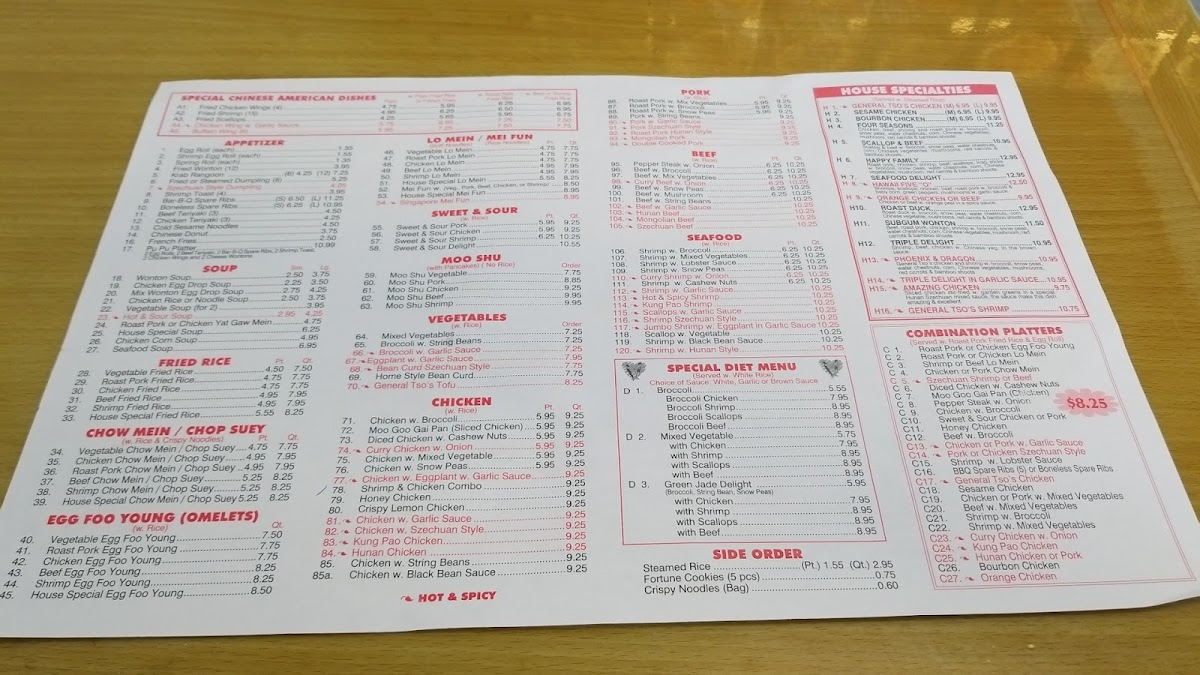 SPECIAL CHINESE AMERICAN DISHES
A1. Fried Chicken Wings (4) 4.75 5.95 6.25 6.95
A2. Fried Shrimp (15)
A3. Fried Scallops
A4. Chicken Wing w. Garlic Sauce
A5. Buffalo Wing
APPETIZER
1. Egg Roll (each) 1.35
2. Shrimp Egg Roll (each) 1.55
3. Spring Roll (each)
4. Fried Wonton (12) 3.95
5. Krab Rangoon (6) 4.25 (12) 7.25
6. Fried or Steamed Dumpling (8) 5.25
7. Szechuan Style Dumpling 4.25
8. Shrimp Toast (4) 3.95
9. Bar-B-Q Spare Ribs (S) 6.50 (L) 11.25
10. Boneless Spare Ribs (S) 6.25 (L) 10.95
11. Beef Teriyaki (3) 4.50
12. Chicken Teriyaki (3) 4.25
13. Cold Sesame Noodles 4.50
14. Chinese Donut 3.75
16. French Fries
17. Pu Pu Platter 10.99
SOUP
18. Wonton Soup 2.50 3.75
19. Chicken Egg Drop Soup 2.25 3.50
20. Mix Wonton Egg Drop Soup 2.75 4.25
21. Chicken Rice or Noodle Soup 2.50 3.75
22. Vegetable Soup (for 2) 3.95
23. Hot & Sour Soup 2.95 4.25
24. Roast Pork or Chicken Yat Gaw Mein 4.75
25. House Special Soup 6.25
26. Chicken Corn Soup 4.95
27. Seafood Soup 6.95
FRIED RICE
Pt. Qt.
28. Vegetable Fried Rice 4.50 7.50
29. Roast Pork Fried Rice 4.75 7.75
30. Chicken Fried Rice 4.75 7.75
31. Beef Fried Rice 4.95 7.95
32. Shrimp Fried Rice 4.95 7.95
33. House Special Fried Rice 5.55 8.25
CHOW MEIN / CHOP SUEY
(w. Rice & Crispy Noodles) Pt. Qt.
34. Vegetable Chow Mein / Chop Suey 4.75 7.75
35. Chicken Chow Mein / Chop Suey 4.95 7.95
36. Roast Pork Chow Mein / Chop Suey 4.95 7.95
37. Beef Chow Mein / Chop Suey 5.25 8.25
38. Shrimp Chow Mein / Chop Suey 5.25 8.25
39. House Special Chow Mein / Chop Suey 5.25 8.25
EGG FOO YOUNG (OMELETS)
(w. Rice) Qt.
40. Vegetable Egg Foo Young 7.50
41. Roast Pork Egg Foo Young 7.75
42. Chicken Egg Foo Young 7.75
43. Beef Egg Foo Young 8.25
44. Shrimp Egg Foo Young 8.25
45. House Special Egg Foo Young 8.50
LO MEIN / MEI FUN
Pt. Qt.
46. Vegetable Lo Mein 4.75 7.75
47. Roast Pork Lo Mein 4.75 7.75
48. Chicken Lo Mein 4.75 7.75
49. Beef Lo Mein 4.95 7.95
50. Shrimp Lo Mein 4.95 7.95
51. House Special Lo Mein 5.55 8.25
52. Mei Fun w. (Veg, Pork, Beef, Chicken, or Shrimp) 8.50
53. House Special Mei Fun 8.95
54. Singapore Mei Fun 8.95
SWEET & SOUR
(w. Rice) Pt. Qt.
55. Sweet & Sour Pork 5.95 9.25
56. Sweet & Sour Chicken 5.95 9.25
57. Sweet & Sour Shrimp 6.25 10.25
58. Sweet & Sour Delight 10.55
MOO SHU
(with Pancakes) ( No Rice) Order
59. Moo Shu Vegetable 7.75
60. Moo Shu Pork 8.85
61. Moo Shu Chicken 9.25
62. Moo Shu Beef 9.95
63. Moo Shu Shrimp 9.95
VEGETABLES
(w. Rice) Order
64. Mixed Vegetables 7.25
65. Broccoli w. String Beans 7.25
66. Broccoli w. Garlic Sauce 7.25
67. Eggplant w. Garlic Sauce 7.95
68. Bean Curd Szechuan Style 7.75
69. Home Style Bean Curd 7.75
70. General Tso's Tofu 8.25
CHICKEN
(w. Rice) Pt. Qt.
71. Chicken w. Broccoli 5.95 9.25
72. Moo Goo Gai Pan (Sliced Chicken) 5.95 9.25
73. Diced Chicken w. Cashew Nuts 5.95 9.25
74. Curry Chicken w. Onion 5.95 9.25
75. Chicken w. Mixed Vegetable 5.95 9.25
76. Chicken w. Snow Peas 5.95 9.25
77. Chicken w. Eggplant w. Garlic Sauce 9.25
78. Shrimp & Chicken Combo 9.25
79. Honey Chicken 9.25
80. Crispy Lemon Chicken 9.25
81. Chicken w. Garlic Sauce 9.25
82. Chicken w. Szechuan Style 9.25
83. Kung Pao Chicken 9.25
84. Hunan Chicken 9.25
85. Chicken w. String Beans 9.25
85a. Chicken w. Black Bean Sauce 9.25
HOT & SPICY
PORK
(w. Rice) Pt. Qt.
86. Roast Pork w. Mix Vegetables 5.95 9.25
87. Roast Pork w. Broccoli 5.95 9.25
88. Roast Pork w. Snow Peas 5.95 9.25
89. Pork w. String Beans 9.25
90. Pork w. Garlic Sauce 9.25
91. Pork Szechuan Style 9.25
92. Roast Pork Hunan Style 9.25
93. Mongolian Pork 9.25
94. Double Cooked Pork 9.25
BEEF
(w. Rice) Pt. Qt.
95. Pepper Steak w. Onion 6.25 10.25
96. Beef w. Broccoli 6.25 10.25
97. Beef w. Mixed Vegetables 6.25 10.25
98. Curry Beef w. Onion 6.25 10.25
99. Beef w. Snow Peas 6.25 10.25
100. Beef w. Mushroom 6.25 10.25
101. Beef w. String Beans 10.25
102. Beef w. Garlic Sauce 10.25
103. Hunan Beef 10.25
104. Mongolian Beef 10.25
105. Szechuan Beef 10.25
SEAFOOD
(w. Rice) Pt. Qt.
106. Shrimp w. Broccoli 6.25 10.25
107. Shrimp w. Mixed Vegetables 6.25 10.25
108. Shrimp w. Lobster Sauce 6.25 10.25
109. Shrimp w. Snow Peas 6.25 10.25
110. Curry Shrimp w. Onion 6.25 10.25
111. Shrimp w. Cashew Nuts 6.25 10.25
112. Shrimp w. Garlic Sauce 10.25
113. Hot & Spicy Shrimp 10.25
114. Kung Pao Shrimp 10.25
115. Scallops w. Garlic Sauce 10.25
116. Shrimp Szechuan Style 10.25
117. Jumbo Shrimp w. Eggplant in Garlic Sauce 10.25
118. Scallop w. Vegetable 10.25
119. Shrimp w. Black Bean Sauce 10.25
120. Shrimp w. Hunan Style 10.25
SPECIAL DIET MENU
(Served w. White Rice)
Choice of Sauce: White, Garlic or Brown Sauce
D 1. Broccoli 5.55
Broccoli Chicken 7.95
Broccoli Shrimp 8.95
Broccoli Scallops 8.95
Broccoli Beef 8.95
D 2. Mixed Vegetable 5.75
with Chicken 7.95
with Shrimp 8.95
with Scallops 8.95
with Beef 8.95
D 3. Green Jade Delight 5.95
(Broccoli, String Bean, Snow Peas)
with Chicken 7.95
with Shrimp 8.95
with Scallops 8.95
with Beef 8.95
SIDE ORDER
Steamed Rice (Pt.) 1.55 (Qt.) 2.95
Fortune Cookies (5 pcs) 0.75
Crispy Noodles (Bag) 0.60
HOUSE SPECIALTIES
(Served w. Steamed Rice)
H 1. GENERAL TSO'S CHICKEN (M) 6.95 (L) 9.95
H 2. SESAME CHICKEN (M) 6.95 (L) 9.95
H 3. BOURBON CHICKEN (M) 6.95 (L) 9.95
H 4. FOUR SEASONS 11.25
H 5. SCALLOP & BEEF
H 6. HAPPY FAMILY 12.95
H 7. SEAFOOD DELIGHT 12.95
H 8. HAWAII FIVE "O" 12.50
H 9. ORANGE CHICKEN OR BEEF 9.95
H10. ROAST DUCK 12.95
H11. SUBGUM WONTON
H12. TRIPLE DELIGHT 10.95
H13. PHOENIX & DRAGON 10.95
General Tso's chicken and shrimp w. broccoli, snow peas, water chestnuts, corn, carrots, Chinese vegetables, mushrooms, red carrot & bamboo shoots
H14. TRIPLE DELIGHT IN GARLIC SAUCE 10.95
H15. AMAZING CHICKEN 9.75
H16. GENERAL TSO'S SHRIMP 10.75
COMBINATION PLATTERS
(Served w. Roast Pork Fried Rice & Egg Roll)
$8.25
C 1. Roast Pork or Chicken Egg Foo Young
C 2. Roast Pork or Chicken Lo Mein
C 3. Shrimp or Beef Lo Mein
C 4. Chicken or Pork Chow Mein
C 5. Szechuan Shrimp or Beef
C 6. Diced Chicken w. Cashew Nuts
C 7. Moo Goo Gai Pan (Chicken)
C 8. Pepper Steak w. Onion
C 9. Chicken w. Broccoli
C10. Sweet & Sour Chicken or Pork
C11. Honey Chicken
C12. Beef w. Broccoli
C13. Chicken or Pork w. Garlic Sauce
C14. Pork or Chicken Szechuan Style
C15. Shrimp w. Lobster Sauce
C16. BBQ Spare Ribs (5) or Boneless Spare Ribs
C17. General Tso's Chicken
C18. Sesame Chicken
C19. Chicken or Pork w. Mixed Vegetables
C20. Beef w. Mixed Vegetables
C21. Shrimp w. Broccoli
C22. Shrimp w. Mixed Vegetables
C23. Curry Chicken w. Onion
C24. Kung Pao Chicken
C25. Hunan Chicken or Pork
C26. Bourbon Chicken
C27. Orange Chicken